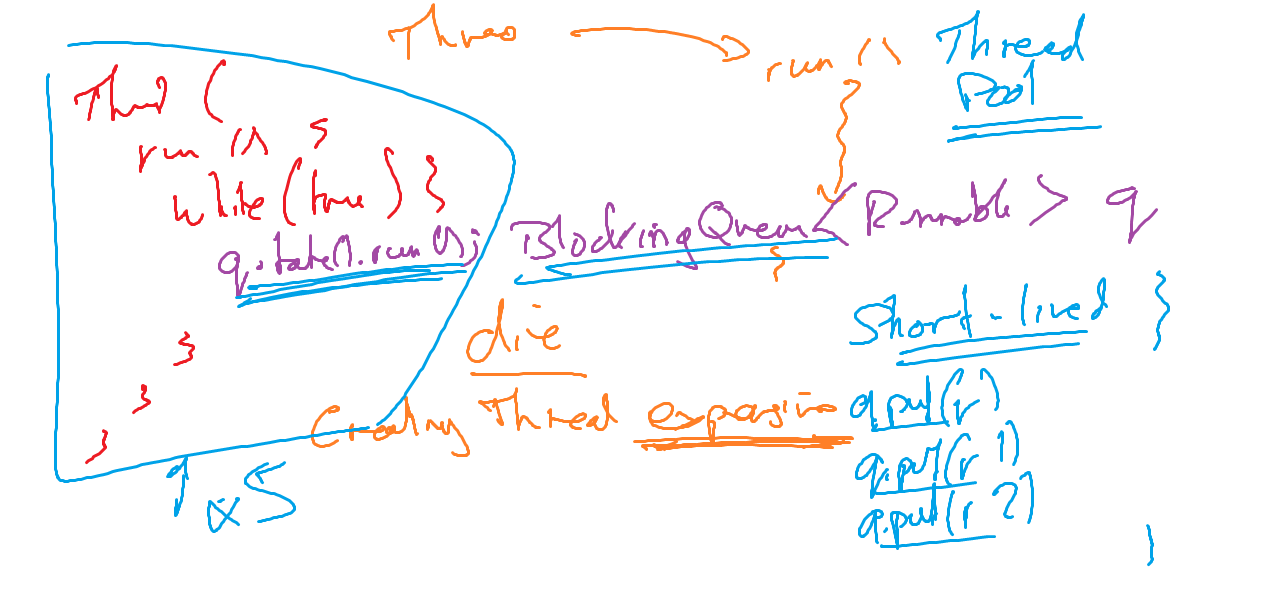 Thread
run ()
Thread
Pool
Thread (
run () {
while (true) {
q.take().run();
}
}
}
BlockingQueue< Runnable > q
die
Creating Thread expensive
Short-lived }
q.put(r)
q.put(r1)
q.put(r2)
}
x5